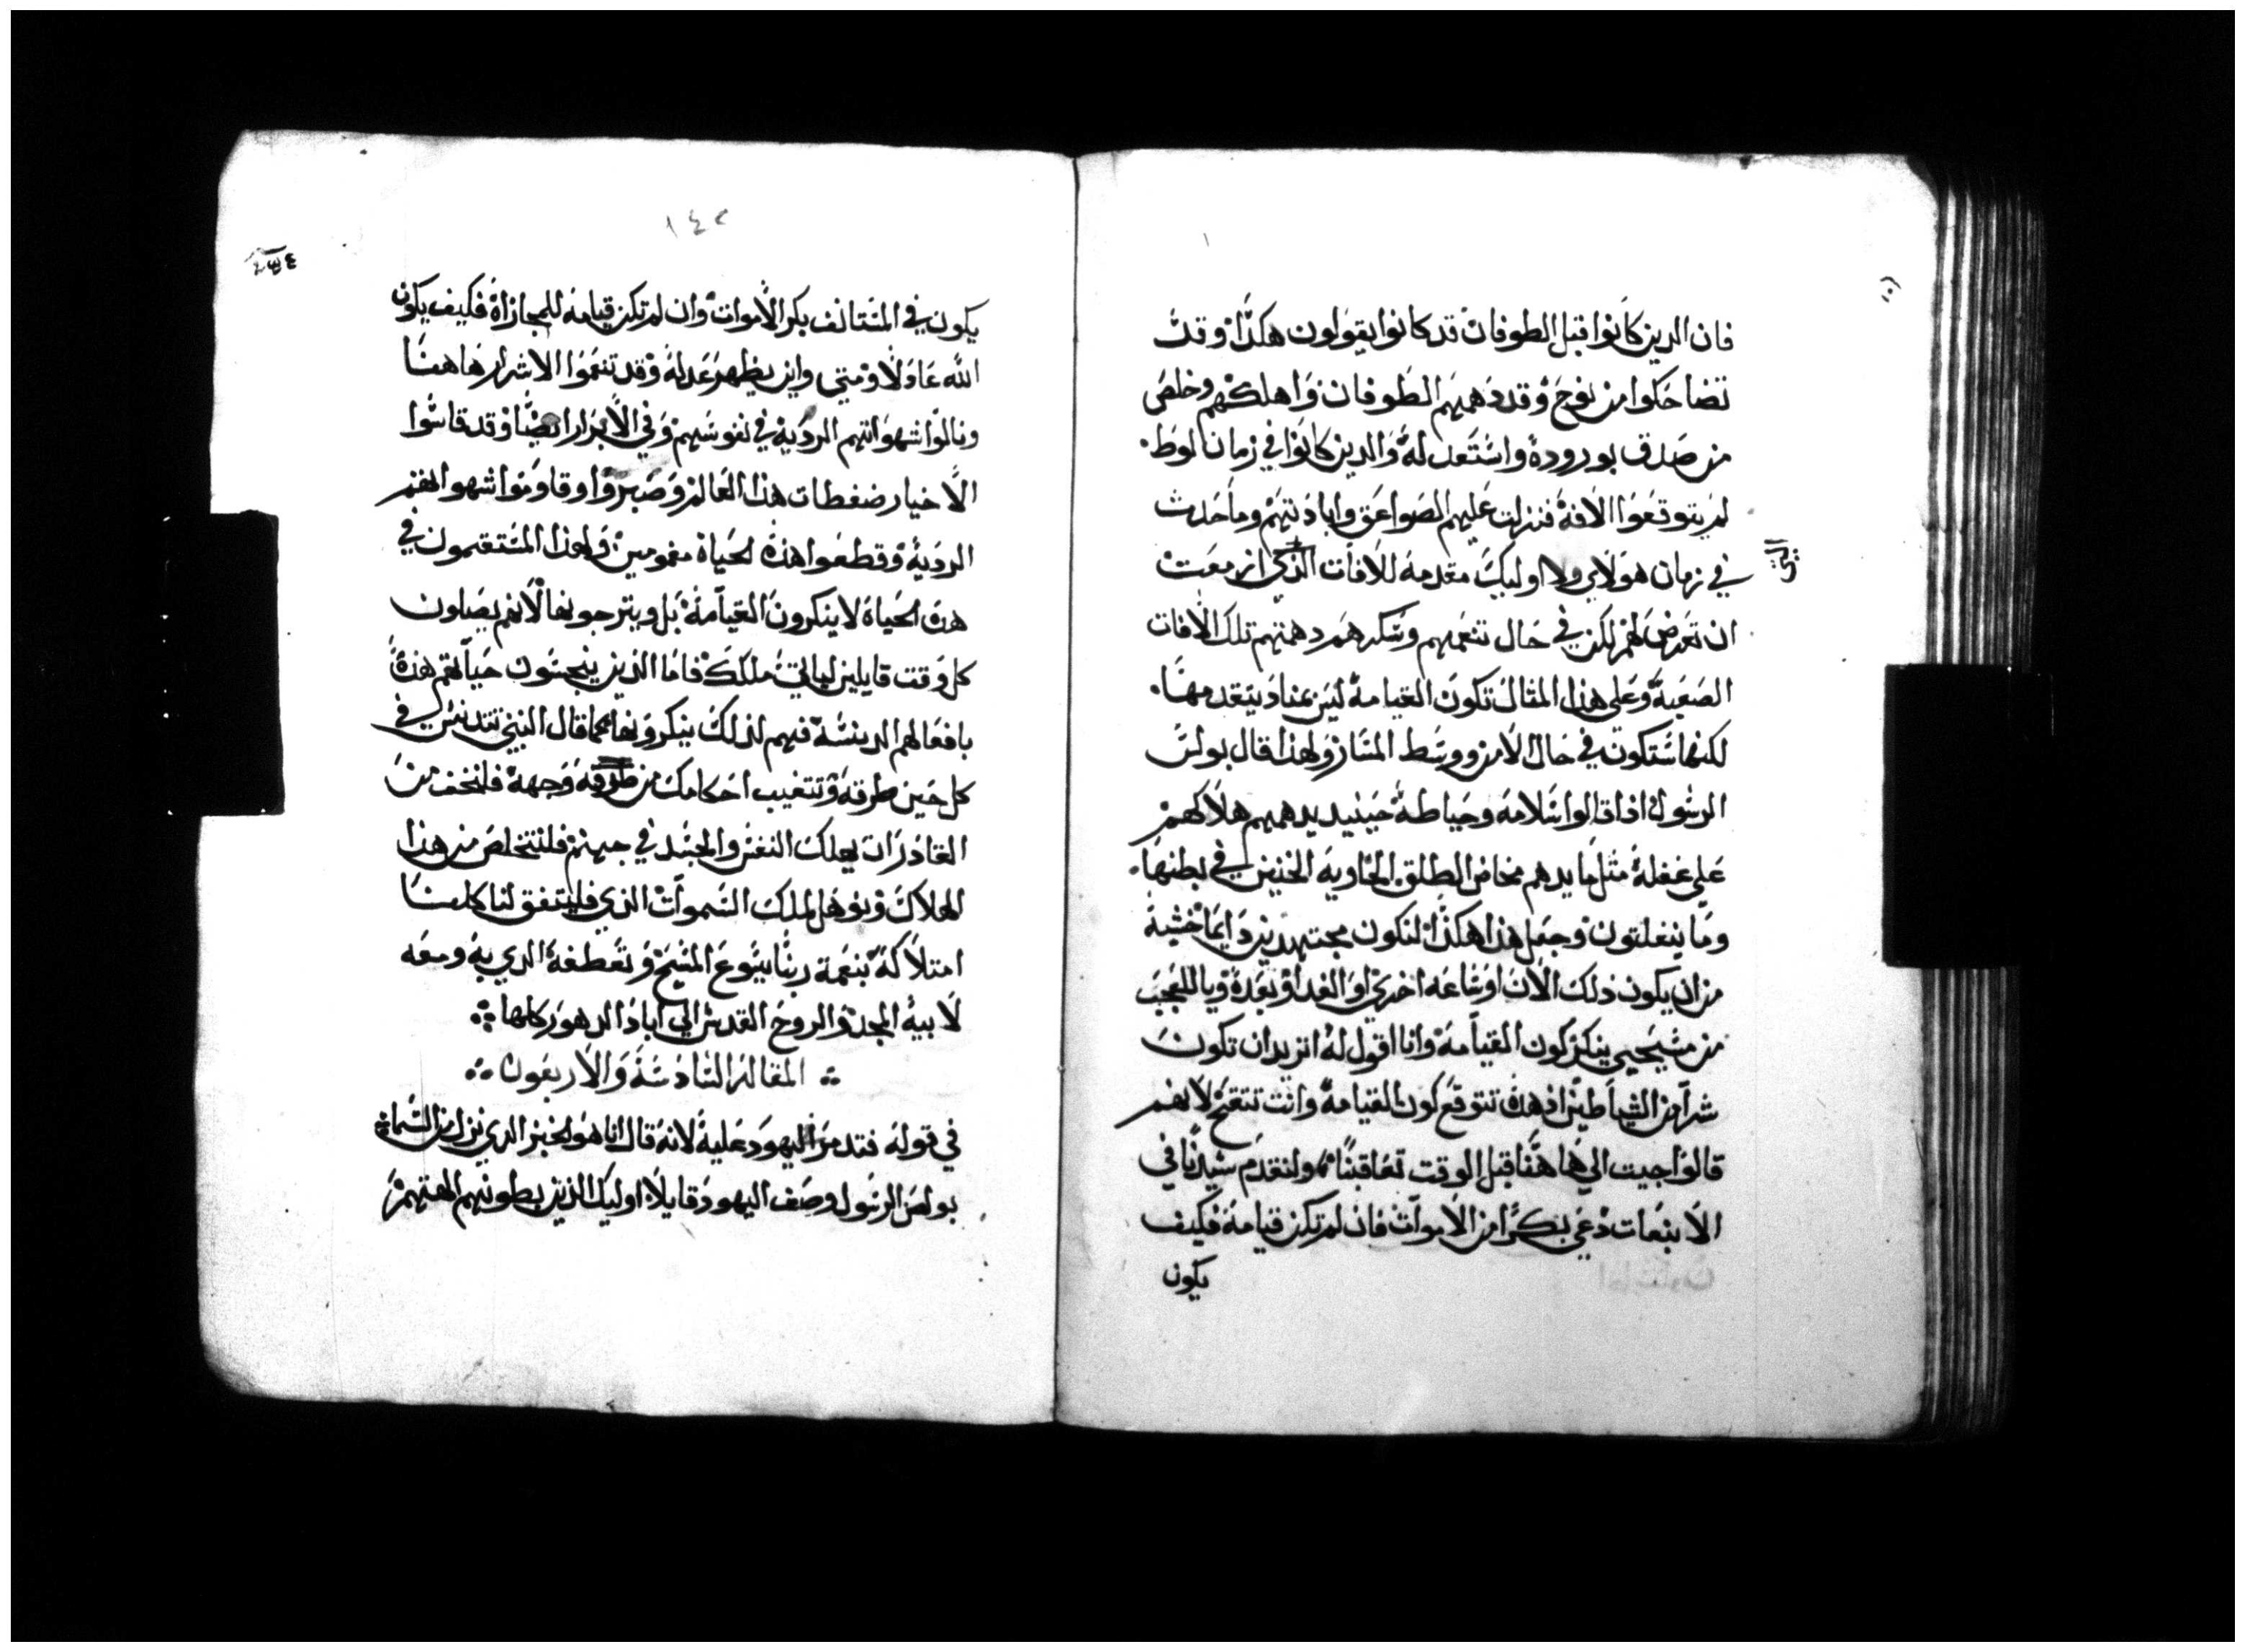 فان الدين كانوا قبل الطوفان قد كانوا يقولون هكذا وقد
تضاحكوا من نوح وقد دهمهم الطوفان واهلكهم وخلص
من صدق بورودة واستعد له والدين كانوا في زمان لوط
لم يتوقعوا الافة فنزلت عليهم الصواعق وابادتهم وما حدث
في زمان هولاي ولا اوليك مقدمة للافات الذي ازمعت
التي
ان تعرض لهم لكن في حال تنعمهم وسكرهم دهمتهم تلك الافات
الصعبة وعلى هذا المثال تكون القيامة ليس بمناد يتقدمها
لكنها ستكون في حال الامن ووسط المنازه ولهذا قال بولس
الرسول اذا قالوا سلامة وحياطة حينيد يدهمهم هلاكهم
على غفلة مثل ما يدهم مخاض الطلق الحاوية الجنين في بطنها
وما ينفلتون وجعل هذا هكذا لنكون مجتهدين دايما خشية
من ان يكون ذلك الان او ساعة اخري او الغد او بعده ويا للعجب
من مسيحي ينكر كون القيامة وانا اقول له اتريد ان تكون
شرا من الشياطين اذ هده تتوقع كون القيامة وانت تتقح لانهم
قالوا جيت الي هاهنا قبل الوقت تعاقبنا ولتقدم سيدنا في
الانبعات دعي بكرا من الاموات فان لم تكن قيامة فكيف
يكون
١٤٢
يكون في المستانف بكر الاموات وان لم تكن قيامة للمجازاة فكيف يكون
الله عادلا ومتي واين يظهر عدله وقد تنعموا الاشرار هاهنا
ونالوا شهواتهم الردية في نفوسهم وفي الابرار ايضا وقد قاسوا
الاخيار ضغطات هذا العالم وصبروا وقاوموا شهواتهم
الردية وقطعوا هذه الحياة مغمومين ولهذا المستقيمون في
هده الحياة لا ينكرون القيامة بل ويترجونها لانهم يصلون
كل وقت قايلين لياتي ملكك فاما الذين ينجسون حياتهم هذه
بافعالهم الدنسة فهم لذلك ينكرونها كما قال النبي تتدنس في
كل حين طرقه وتتغيب احكامك من طرقه وجهه فلنخف من
القادر ان يهلك النفس والجسد في جهنم فلنتخلص من هذا
الهلاك ونوهل لملك السموات الذي فليتفق لنا كلنا
امتلاكه بنعمة ربنا يسوع المسيح وتعطفه الدي به ومعه
لابيه المجد والروح القدس الي اباد الدهور كلها
المقالة السادسة والاربعون
في قوله فتدمر اليهود عليه لانه قال انا هو الخبز الدي نزل من السماء
بولس الرسول وصف اليهود قايلا اوليك الذين بطونهم الهتهم